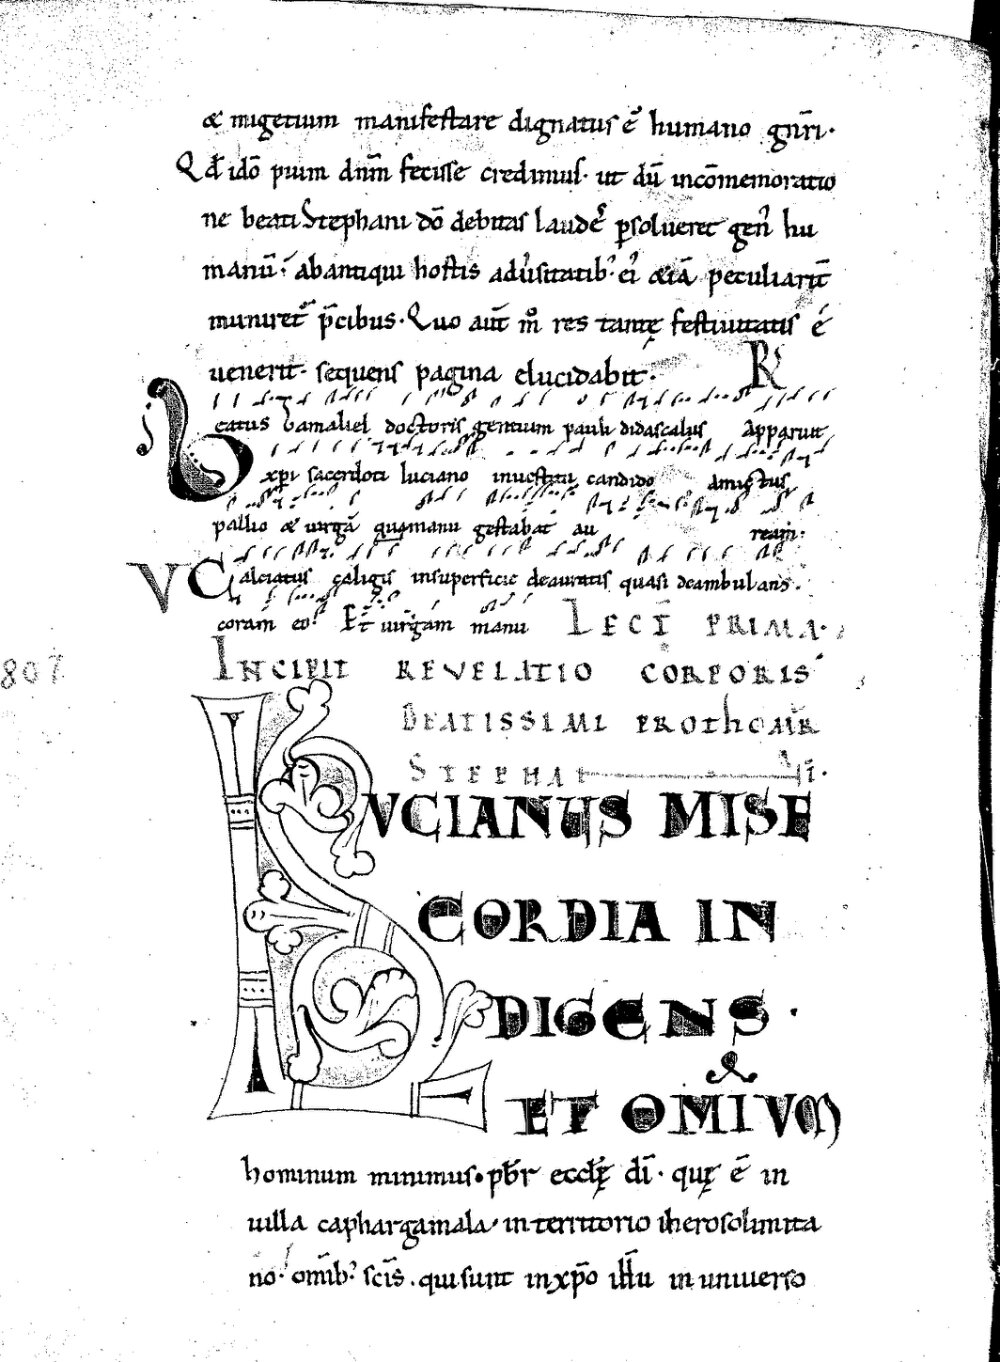 & migetium manifestare dignatus ē humano gn̄ri·
Qd̄ idō pium dn̄m fecisse credimus· ut dū incōmemoratio
ne beati Stephani dō debitas laudes p̱solueret gen' hu
manū· abantiqui hostis adu'sitatib; ei' &iā peculiarit̄
muniret̄ p̄cibus· Quo aut̄ m° res tantę festiuitatis é
uenerit· sequens pagina elucidabit· R
Beatus Gamaliel doctoris gentium pauli didascalus Apparuit
xp̄i sacerdoti luciano inuestitu candido amictus
pallio & uirgā quamanu gestabat au ream·
V Calciatus caligis insuperficie deauratis quasi deambulans·
coram eo· Et̄ uirgam manu LECT̄ PRIMA·
INCIPIT REVELATIO CORPORIS
BEATISSIMI PROTHOMR̄
STEPHANI·
LVCIANUS MISE
CORDIA IN
DIGENS·
&
ET OMIVM
hominum minimus· pb̄r ecclę dī· quę ē in
uilla caphargamala· in territorio iherosolimita
no· om̄ib; sc̄is· qui sunt inxp̄o ih̄u in uniuerso
807